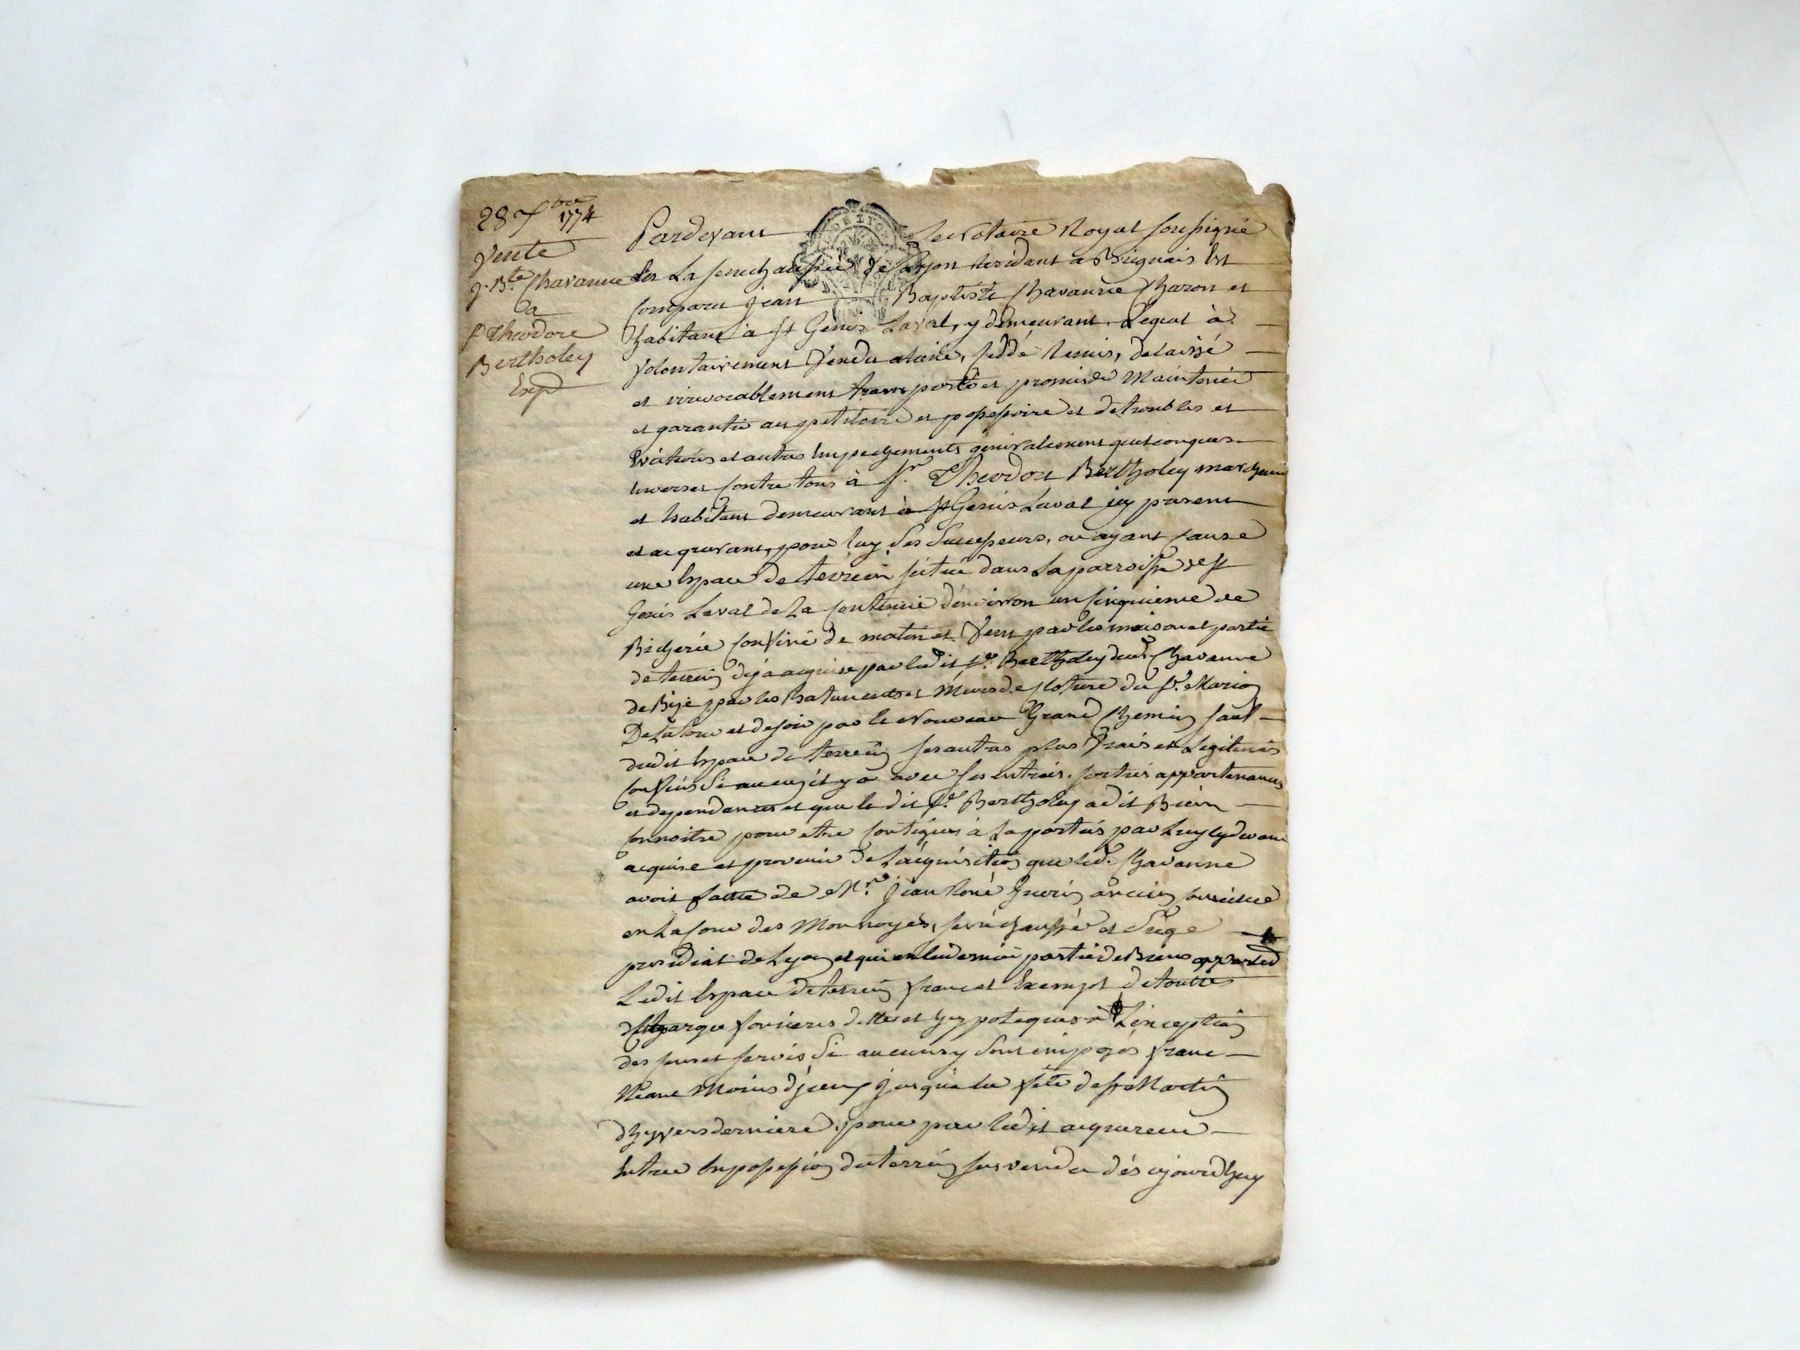 28 7bre 1774
Vente
J. Bte Chavanne
a
Sr Theodore
Bertholey
Exp
Pardevant Le Notaire Royal soussigné
en La senechaussée de Lyon residant a Brignais est
comparu Jean Baptiste Chavanne Charon et
habitant à St Genis Laval, y demeurant, Lequel à
volontairement vendu aliené, ceddé remis, delaissé
et irrevocablement transporté et promis de maintenir
et garantir au petitoire et possessoire et de troubles et
evictions et autres empechements generalement quelconques
envers et contre tous à Sr. Theodore Bertholey marchand
et habitant demeurant à St Genis Laval icy present
et acquerant, pour luy ses successeurs, ou ayant cause
une espace de terrein situé dans La parroisse de St
Genis Laval de La contenue d'environ un cinquieme de
Bicherée confiné de matin et vent par les maison et partie
de terrein deja acquise par ledit Sr. Bertholey dud. Chavanne
de Bize par les batiments et Murs de cloture du Sr. Marion
De La tour et de soir par le nouveau Grand Chemin sauf
dudit espace de terrein ses autres plus vrais et Legitimes
confins si aucuns il y a avec ses entrées, sorties appartenances
et dependances et que le dit Sr. Bertholey a dit Bien
connoitre pour etre contigues à La partie par Luy cydevant
acquise et provenir de L'acquisition que led. Chavanne
avoit faitte de Mr. Jean René Guerin ancien conseiller
en La cour des Monnoyes, senechaussée et Siege
presidial de Lyon et qui en
Ledit espace de terrein franc et Exempt de touttes
charges foncieres dettes et hypoteques à L'exception
des cens et servis si aucuns y sont imposés franc
Neanmoins d'iceux jusqu'a la fete de St Martin
d'hyvers derniere, pour par ledit acquereur
entrer en possession du terrein sus vendu dés ajourdhuy